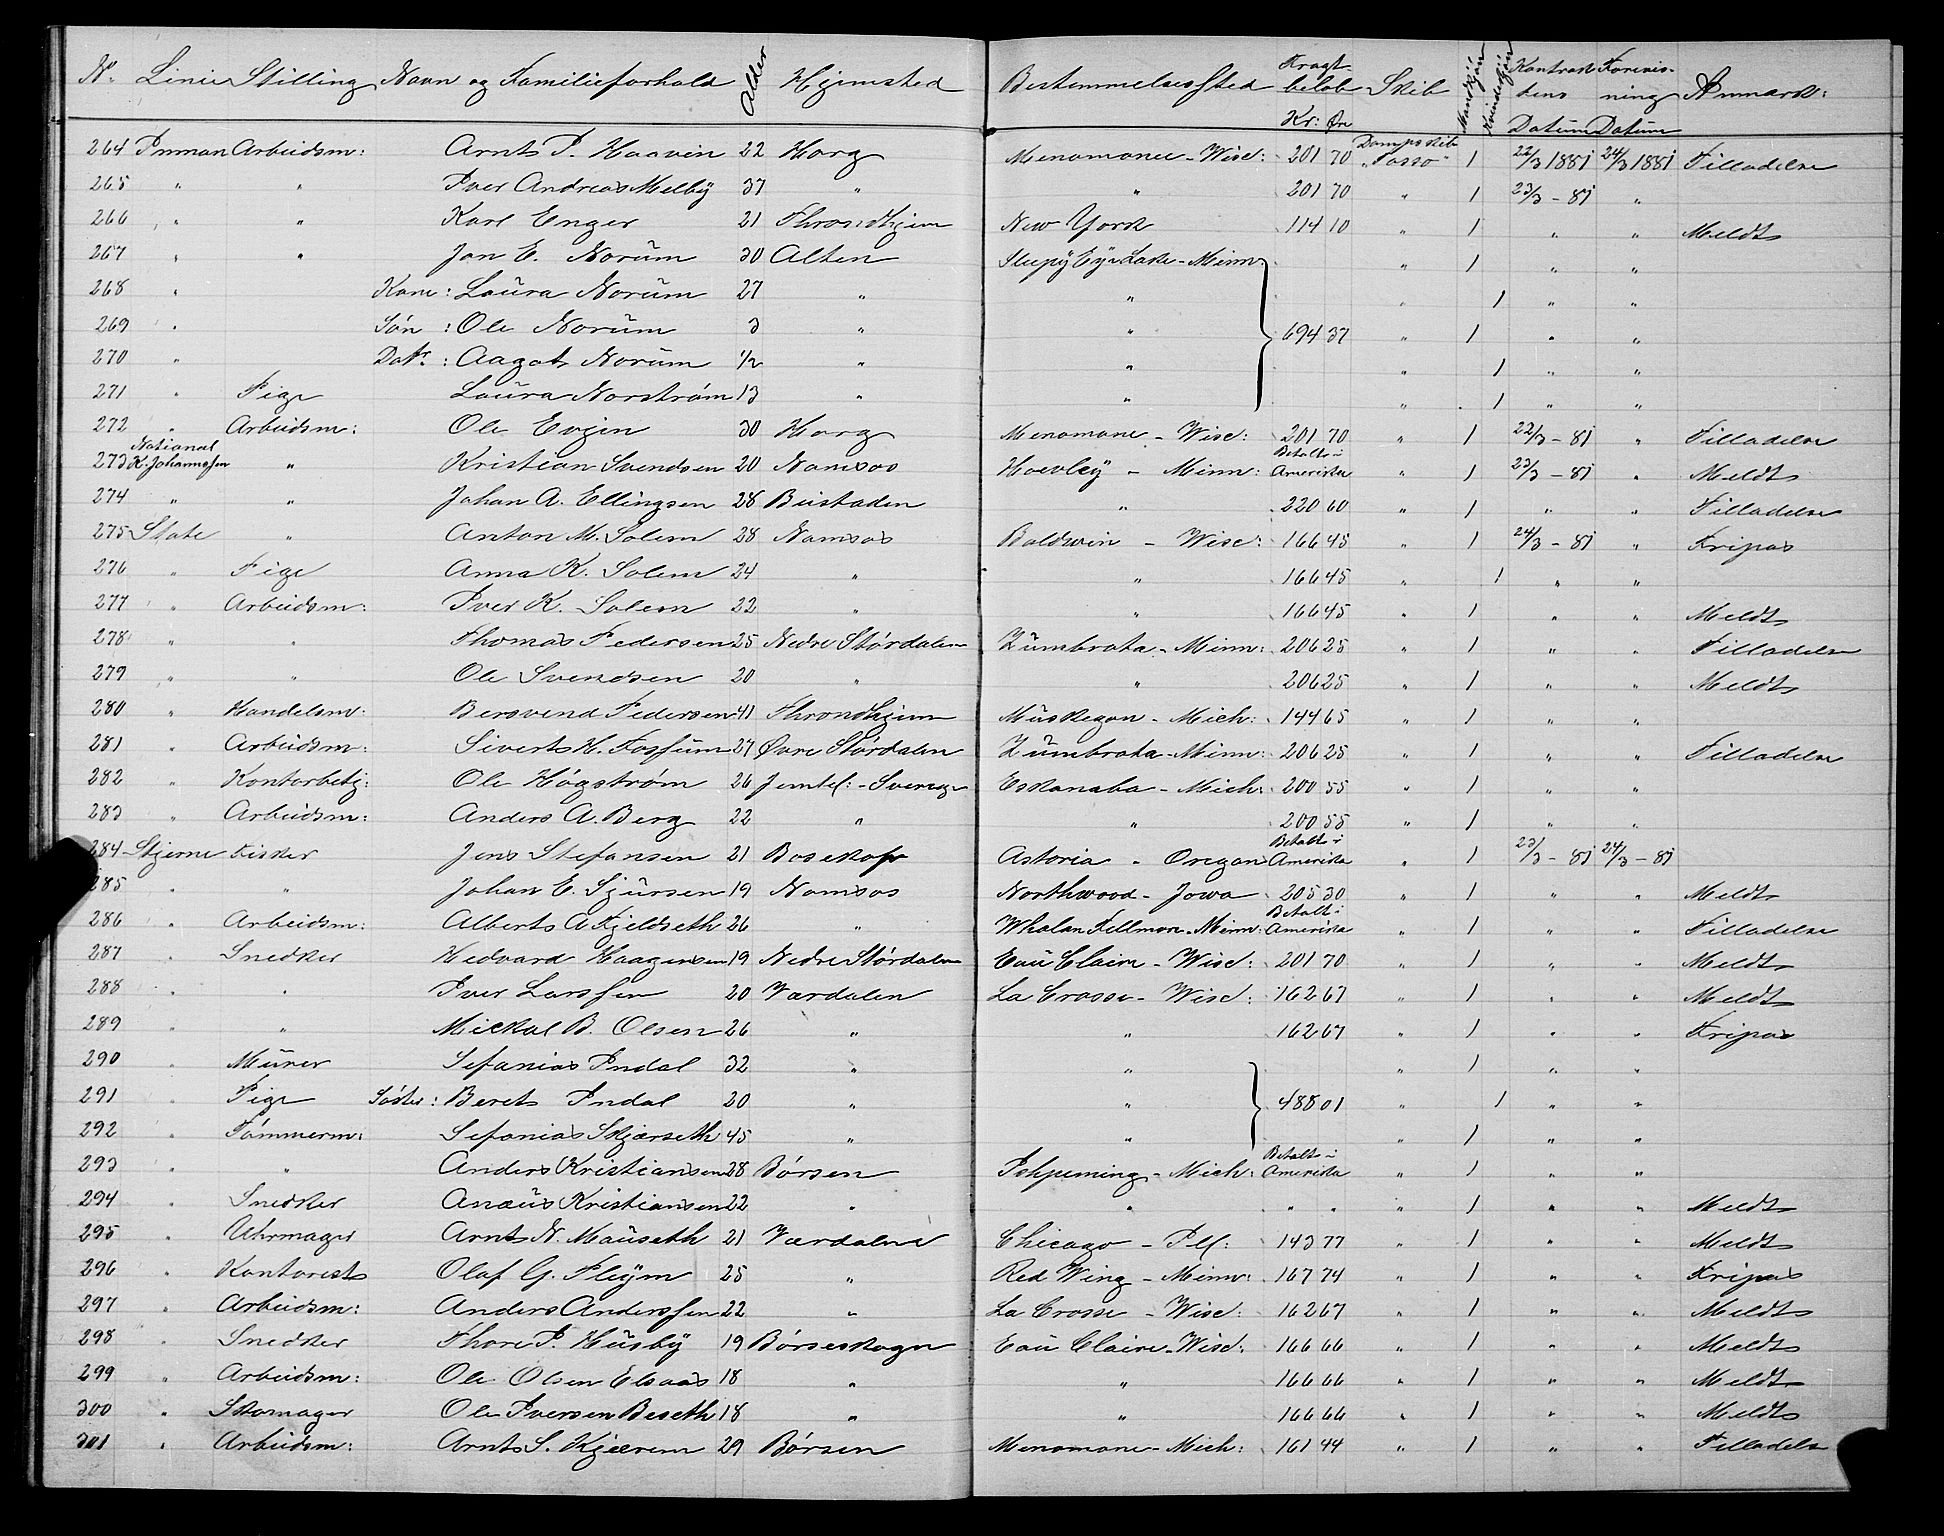 No. Linie Stilling Navn og Familieforhold Alder Hjemsted Bestemmelsessted Fragtbeløb Kr: Øre Skib Mandkjøn Kvindekjøn Kontraktens Datum Forevisning Datum Anmærk:
264 Inman Arbeidsm: Arnt P. Haavin 22 Horg Menomonee - Wisc: 201 70 Dampskib "Tasso" 1 22/3 1881 24/3 1881 Tilladelse
265 " " Iver Andreas Melby 37 " " 201 70 " 1 23/3 - 81 "
266 " " Karl Enger 21 Throndhjem New York 114 10 " 1 " " Meldt
267 " " Jon E. Norum 30 Alten Sleepy Eye Lake - Minn " 1 " "
268 " Kone: Laura Norum 27 " " " 1 " "
269 " Søn: Ole Norum 3 " " 694 37 " 1 " "
270 " Datr: Aagot Norum 1/2 " " " 1 " "
271 " Pige Laura Norstrøm 13 " " " 1 " "
272 " Arbeidsm: Ole Evjen 30 Horg Menomone - Wisc: 201 70 " 1 22/3 - 81 " Tilladelse
273 National K. Johannssen " Kristian Svendsen 20 Namsos Hawley - Minn: Betalt i Amerika " 1 23/3 - 81 " Meldt
274 " " Johan A. Ellingsen 28 Bustaden " 220 60 " 1 " " Tilladelse
275 State " Anton M. Solem 28 Namsos Baldwin - Wisc: 166 45 " 1 24/3 - 81 " Fripas
276 " Pige Anna K. Solem 24 " " 166 45 " 1 " "
277 " Arbeidsm: Iver K. Solem 22 " " 166 45 " 1 " " Meldt
278 " " Thomas Pedersen 25 Nedre Størdalen Zumbrota - Minn: 206 25 " 1 " " Tilladelse
279 " " Ole Svendsen 20 " " 206 25 " 1 " " Meldt
280 " Handelsm: Bersvend Pedersen 41 Throndhjem Muskegon - Mich: 144 65 " 1 " "
281 " Arbeidsm: Sivert H. Fossum 27 Øvre Størdalen Zumbrota - Minn: 206 25 " 1 " " Tilladelse
282 " Kontorbetj: Ole Høgstrøm 26 Jemtl: - Sverige Eskanaba - Mich: 200 55 " 1 " "
283 " Arbeidsm: Anders A. Berg 22 " " 200 55 " 1 " "
284 Stjerne Fisker Jens Stefansen 21 Bosekop Astoria - Oregon Betalt i Amerika " 1 23/3 - 81 24/3 - 81
285 " " Johan E. Sjursen 19 Namsos Northwood - Jowa 205 30 " 1 " " Meldt
286 " Arbeidsm: Albert A Fjeldseth 26 " Whalan Fillmon - Minn: Betalt i Amerika " 1 " " Tilladelse
287 " Snedker Hedvard Haagensen 19 Nedre Størdalen Eau Claire - Wisc: 201 70 " 1 " " Meldt
288 " " Iver Larssen 20 Værdalen La Crosse - Wisc: 162 67 " 1 " " Meldt
289 " " Mickal B. Olsen 26 " " 162 67 " 1 " " Fripas
290 " Murer Sefanias Indal 32 " " " 1 " "
291 " Pige Søster: Beret Indal 20 " " 488 01 " 1 " "
292 " Tømmerm: Sefanias Skjærseth 45 " " " 1 " "
293 " " Anders Kristiansen 28 Børsen Ishpeming - Mich: Betalt i Amerika " 1 " "
294 " Snedker Anæus Kristiansen 22 " " " " " 1 " " Meldt
295 " Uhrmager Arnt N. Mauseth 21 Værdalen Chicago - Ill: 143 77 " 1 " " Meldt
296 " Kontorist Olaf G. Fleym 25 " Red Wing - Minn: 167 74 " 1 " " Fripas
297 " Arbeidsm: Anders Anderssen 22 " La Crosse - Wisc: 162 67 " 1 " " Meldt
298 " Snedker Thore P. Husby 19 Børseskogn Eau Claire - Wisc: 166 66 " 1 " " Meldt
299 " Arbeidsm: Ole Olsen Elsaas 18 " " 166 66 " 1 " " Meldt
300 " Skomager Ole Iversen Beseth 18 " " 166 66 " 1 " " Meldt
301 " Arbeidsm: Arnt S. Kjærem 29 Børsen Menomone - Mich: 161 44 " 1 " " Tilladelse